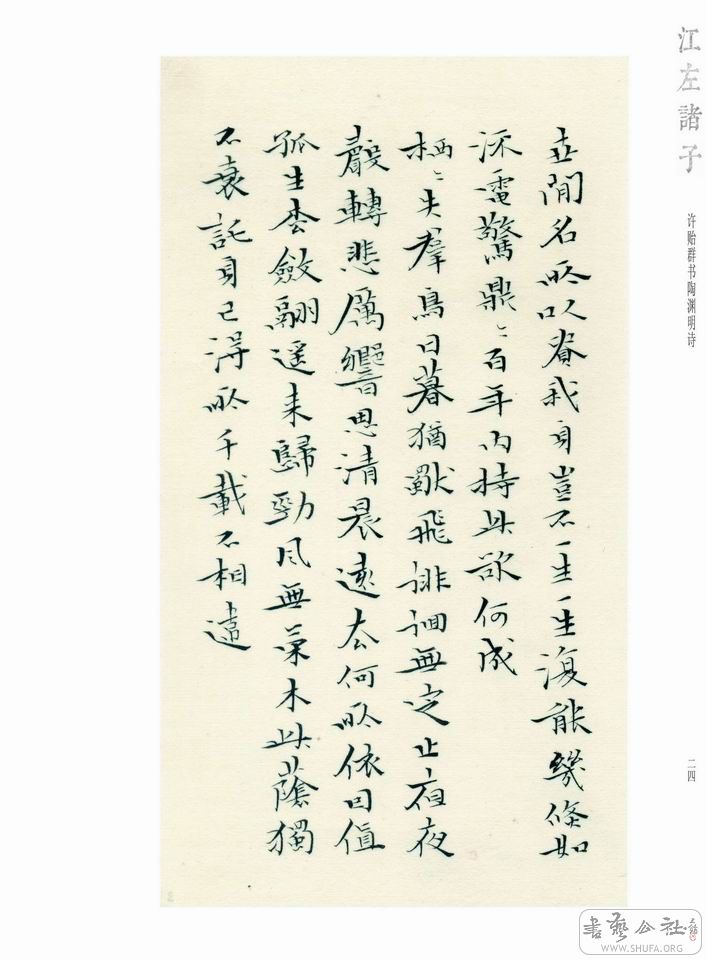 江左諸子
许贻群书陶渊明诗
二四
世閒名所以貴我身豈不一生一生復能幾倏如
流電驚鼎〻百年内持此欲何成
栖〻失羣鳥日暮猶獨飛徘徊無定止夜夜
聲轉悲厲響思清晨遠去何所依因值
孤生松斂翮遥来歸勁風無榮木此蔭獨
不衰託身已得所千載不相違
書藝公社
WWW.SHUFA.ORG